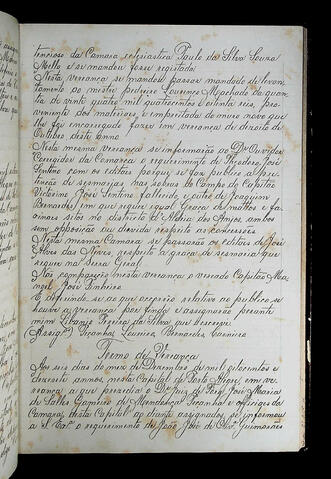 tencioso da Camara eclesiastica Paulo da Silva Souza
Mello e se mandou fosse registado.
Nesta vereança se mandou passar mandado de levan-
tamento ao mestre pedreiro Lourenço Machado da quan-
tia de vinte quatro mil quatrocentos e oitenta reis, pro-
veniente dos materiais e empreitada do muro novo que
lhe foi encarregado fazer em vereança de dezoito de
Outubro deste anno.
Nesta mesma vereança se informarão ao Dr. Ouvidor
Corregedor da Comarca o requerimento de Theodoro José
Centeno com os editais porque se fez publico a pe-
tição de sesmarias nas sobras do Campo do Capitão
Victorino José Centeno fallecido, e outro de Joaquim
Bernardes em que requer igual Graça de mattos e fa-
xinais sitos no districto d'Aldea dos Anjos, ambos
sem opposição ou duvida respeito as concessões
Nesta mesma Camara se passarão os editais de José
Alves das Neves respeito a graça de sesmaria que
requer na Serra Geral.
Não compareceu nesta vereança o vereador Capitão Ma-
noel José Pinheiro.
E deferindo-se ao que occorreo relativo ao publico, se
houve a vereança por finda e assignarão perante
mim Libanio Pereira da Silva que escrevy.
(Assig.) Peçanha, Loureiro, Bernardes, Carneiro
Termo de Vereança
Aos seis dias do mez de Dezembro de mil oitocentos e
dezesete annos, nesta Capital de Porto Alegre, em ve-
reança a que presedio o Dr. Juiz de Fora José Maria
de Salles Gameiro de Mendonça Peçanha e officiaes da
Camara desta Capital ao diante assignados se informou
a S. Exa. o requerimento de João José de Olivª Guimarães